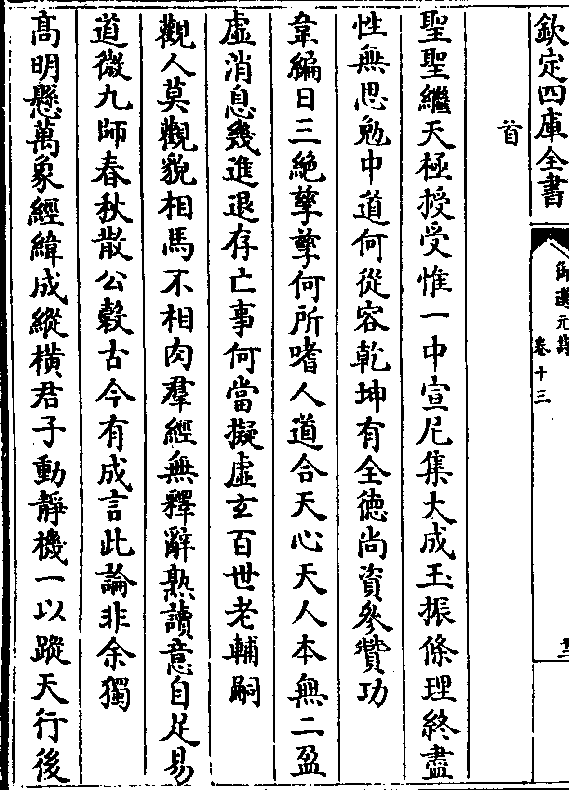 欽定四庫全書
御選元詩
卷十三
首
聖聖繼天極授受惟一中宣尼集大成玉振條理終盡
性無思勉中道何從容乾坤有全徳尚資參贊功
韋編日三絶孳孳何所嗜人道合天心天人本無二盈
虛消息幾進退存亡事何當擬虛玄百世老輔嗣
觀人莫觀貌相馬不相肉羣經無釋辭熟讀意自足易
道微九師春秋散公穀古今有成言此論非余獨
髙明懸萬象經緯成縱橫君子動靜機一以蹤天行後